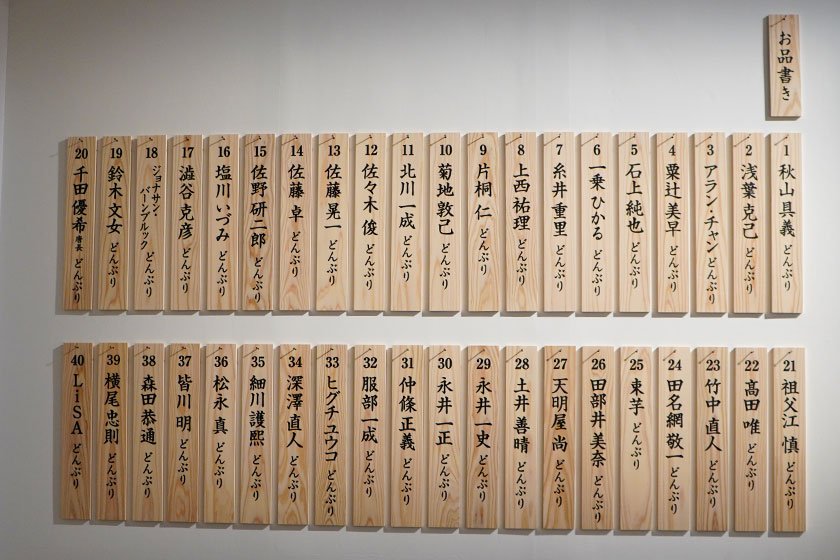 お品書き
1 秋山具義 どんぶり
2 浅葉克己 どんぶり
3 アラン・チャン どんぶり
4 粟辻美早 どんぶり
5 石上純也 どんぶり
6 一乗ひかる どんぶり
7 糸井重里 どんぶり
8 上西祐理 どんぶり
9 片桐 仁 どんぶり
10 菊地敦己 どんぶり
11 北川一成 どんぶり
12 佐々木 俊 どんぶり
13 佐藤晃一 どんぶり
14 佐藤 卓 どんぶり
15 佐野研二郎 どんぶり
16 塩川いづみ どんぶり
17 澁谷克彦 どんぶり
18 ジョナサン・バーンブルック どんぶり
19 鈴木文女 どんぶり
20 千田優希 どんぶり
21 祖父江 慎 どんぶり
22 髙田 唯 どんぶり
23 竹中直人 どんぶり
24 田名網敬一 どんぶり
25 束芋 どんぶり
26 田部井美奈 どんぶり
27 天明屋 尚 どんぶり
28 土井善晴 どんぶり
29 永井一史 どんぶり
30 永井一正 どんぶり
31 仲條正義 どんぶり
32 服部一成 どんぶり
33 ヒグチユウコ どんぶり
34 深澤直人 どんぶり
35 細川護熙 どんぶり
36 松永 真 どんぶり
37 皆川 明 どんぶり
38 森田恭通 どんぶり
39 横尾忠則 どんぶり
40 LiSA どんぶり